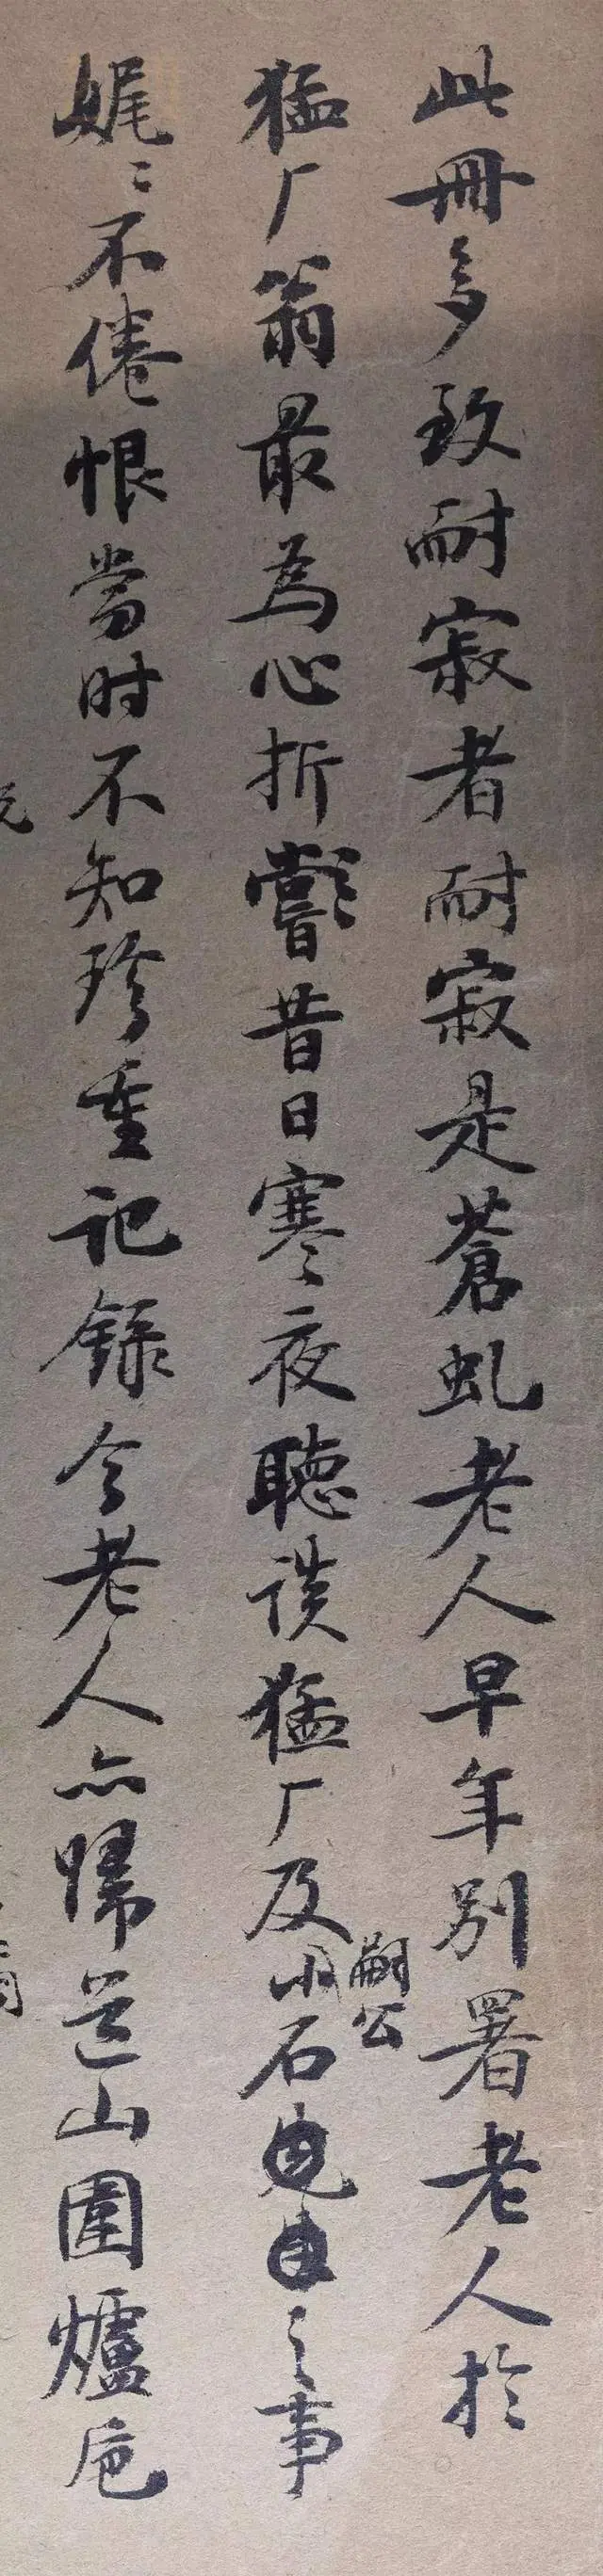 此冊多致耐寂者耐寂是蒼虬老人早年別署老人於
猛厂翁最為心折嘗昔日寒夜聽談猛厂及小石之事
嗣公
娓〻不倦恨當时不知珍重記録今老人亦歸道山圍爐